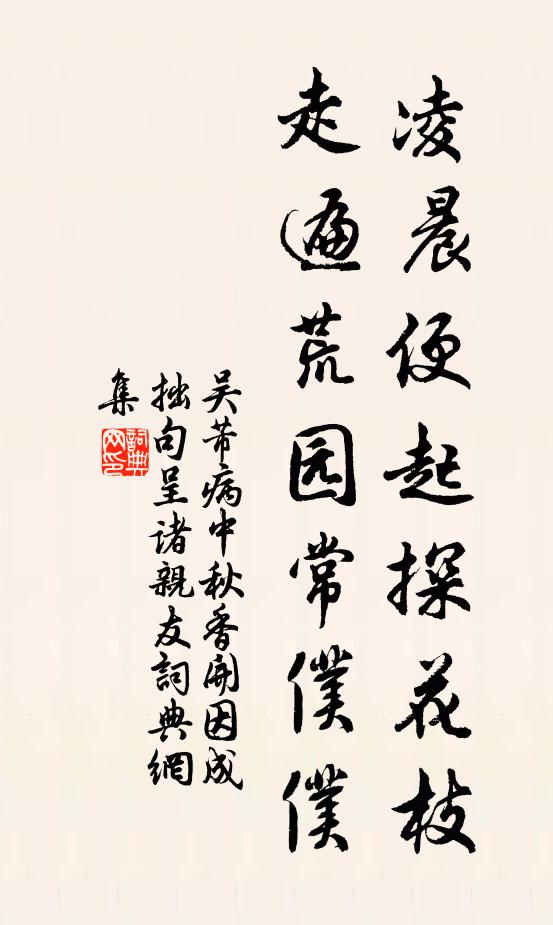 凌晨便起探花枝
走遍荒园常僕僕
吴芾病中秋香開因成
拙句呈诸親友詞典網
集
詞典
网印